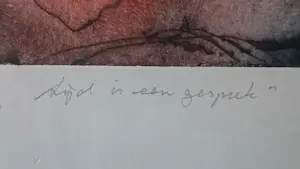 tijd is een gesprek"